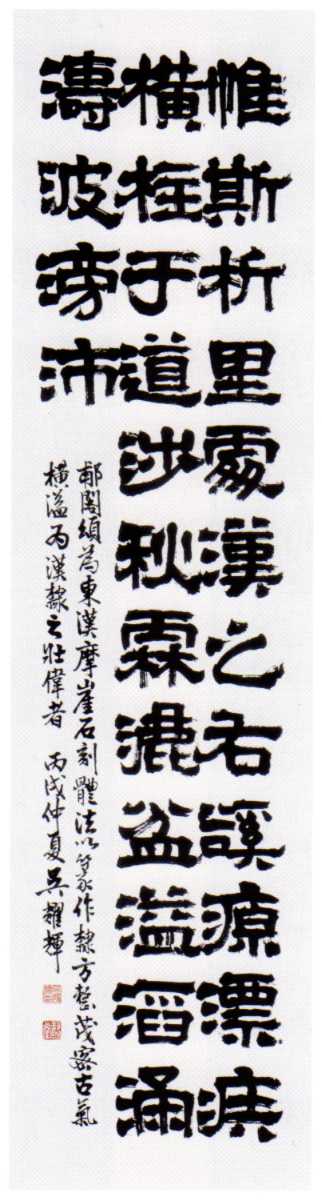 惟斯析里處漢之右谿源漂疾
橫柱于道涉秋霖漉盆溢滔涌
濤波滂沛
郙閣頌為東漢摩崖石刻體法以篆作隸方整茂密古氣
橫溢為漢隸之壯偉者 丙戌仲夏吳耀輝